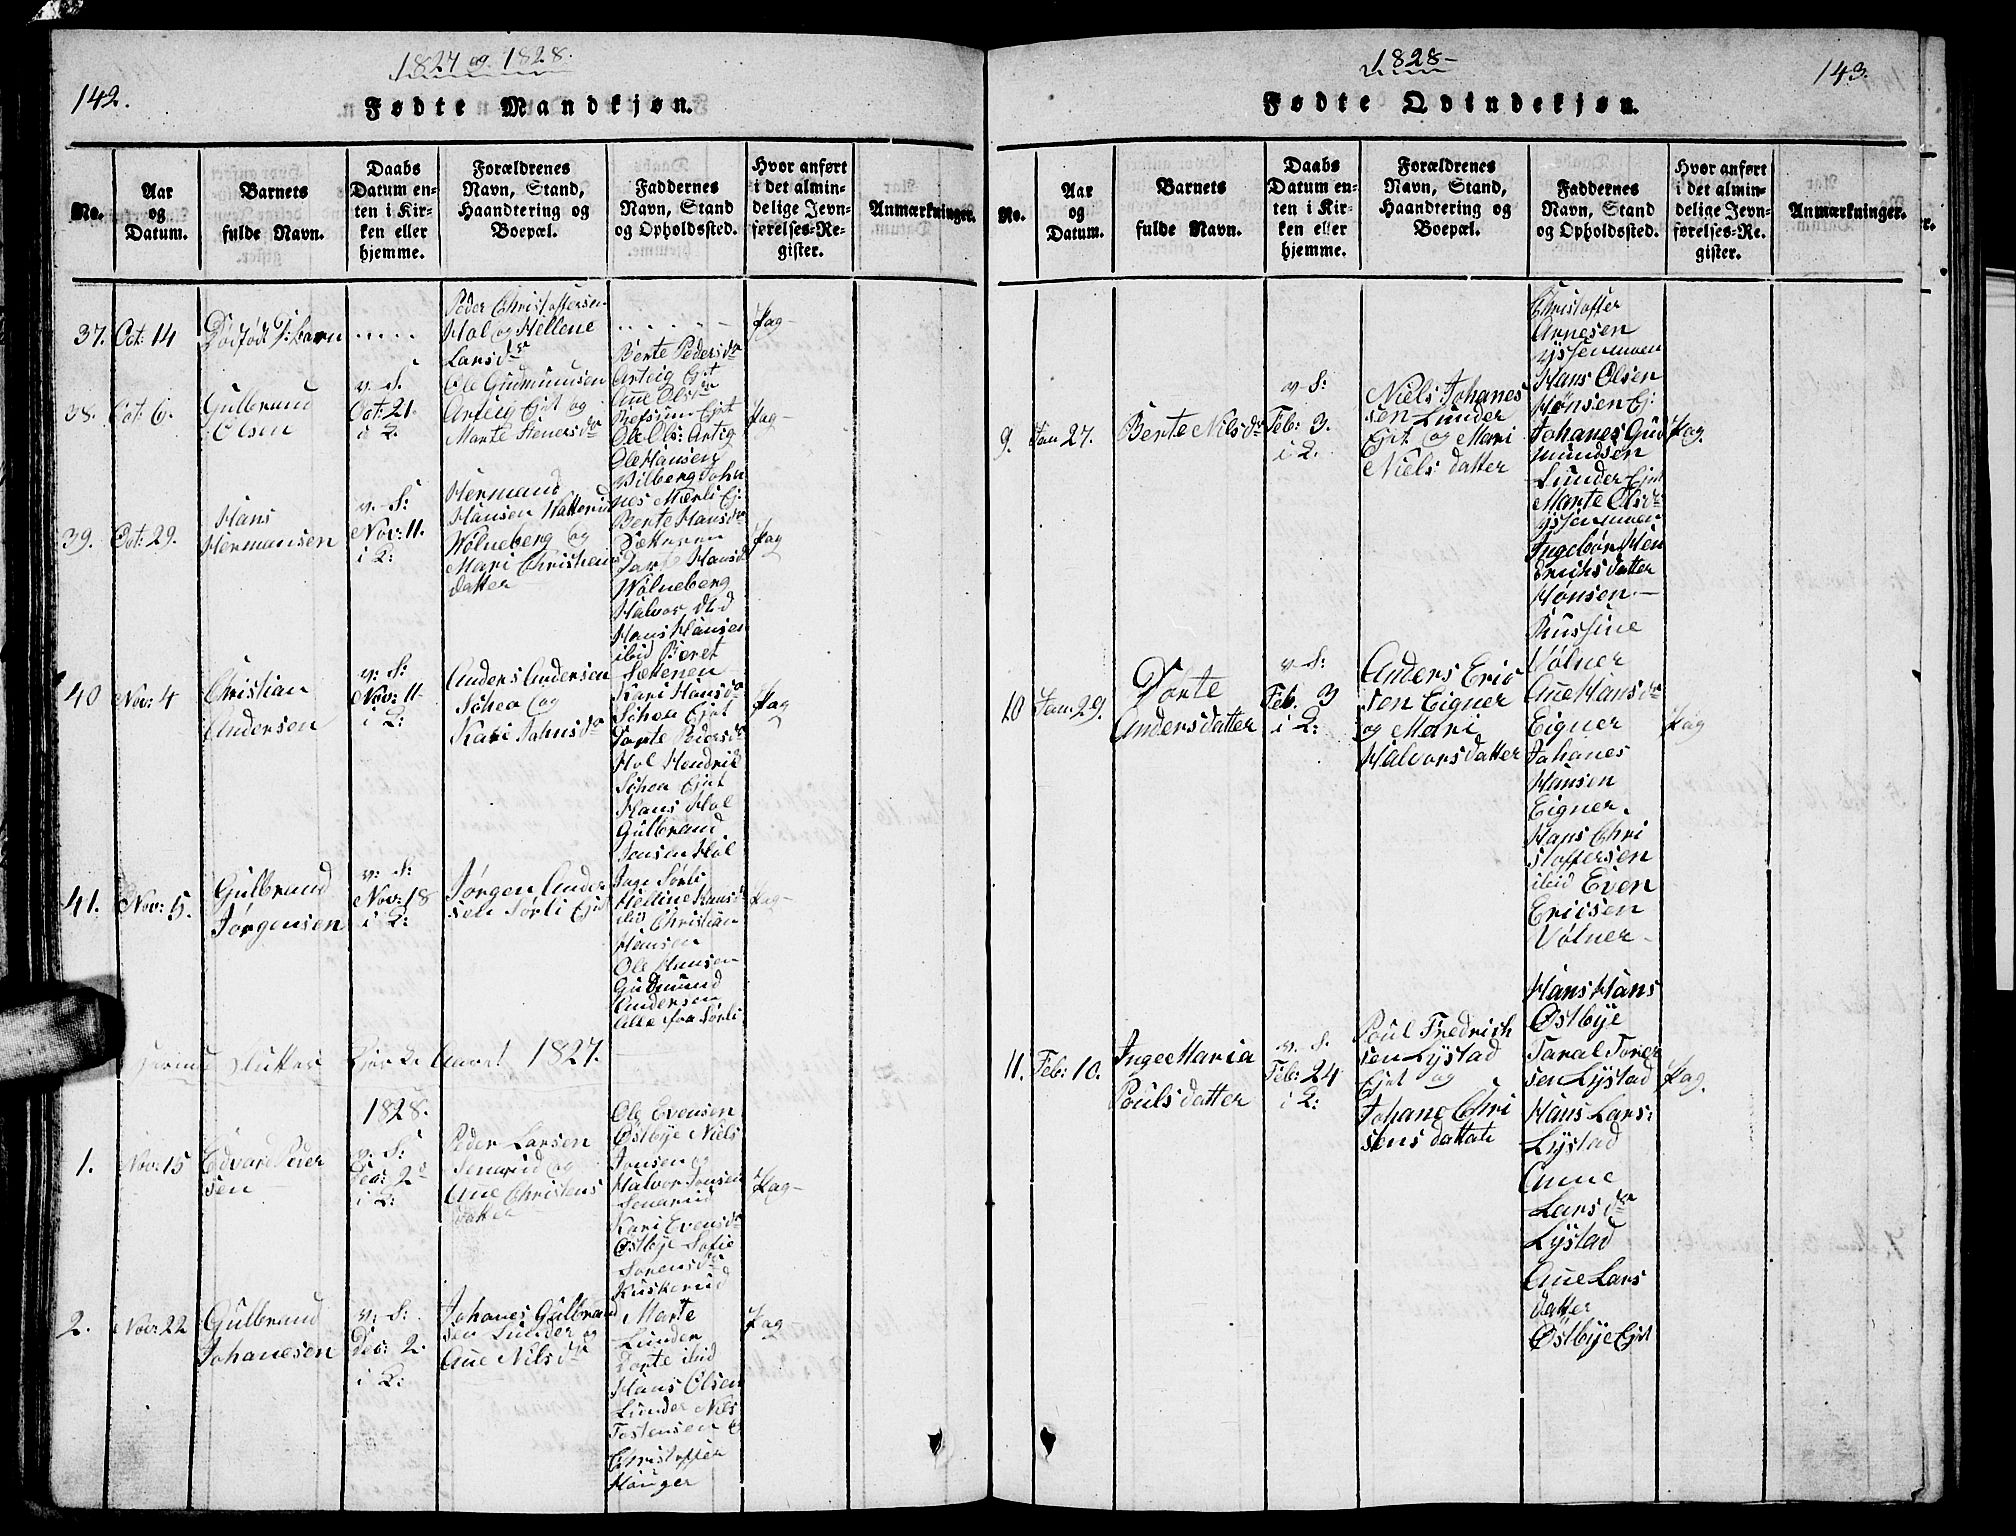 1827 og 1828.
142.
Fødte Mandkjøn.
No.
Aar
og
Datum.
Barnets
fulde Navn.
Daabs
Datum en-
ten i Kir-
ken eller
hjemme.
Forældrenes
Navn, Stand,
Haandtering og
Boepæl.
Faddernes
Navn, Stand
og Opholdssted.
Hvor anført
i det almin-
delige Jevn-
førelses-Re-
gister.
Anmærkninger.
37.
Oct: 14
Dødfødt barn
Peder Christoffersen
Hol og Hellene
Larsdr
Pag
38.
Oct: 6.
Gulbrand
Olsen
v. S.
Oct: 21.
i K.
Ole Gudmunsen
Arteig Ejet og
Marte Stenersdr
Berte Pedersdr
Arteig Ejet
Ane Olsdr
Ejet
Ole Ols: Artig
Pag
39.
Oct: 29.
Hans
Hermansen
v. S:
Nov: 11.
i K:
Hermand
Hansen
Wølneberg og
Mari Christens
datter
Ole Hansen
Vilberg Joha
nes Mærli Ej:
Berte Hansdr
Sætteren
Hansdr
Wølneberg
Halvor ibid
Hans Hansen
ibid Beret
Sættenen
Pag
40
Nov: 4
Christian
Andersen
v: S:
Nov: 11
i K:
Anders Andersen
Schea og
Kari Johnsdr
Kari Hansdr
Schea Ejet
Dorte Pedersdr
Hol Hendrik
Schea Ejet
Hans Hol
Gulbrand
Jensen Hol
Pag
41.
Nov: 5.
Gulbrand
Jørgensen
v: S:
Nov: 18
i K:
Jørgen Ander
sen Sørli Ejet
Inge Sørli
Helline Hansdr
ibid Christian
Hansen
Ole Hansen
Gudmund
Andersen
Alle fra Sørli
Pag
slutter Kirke Aaret 1827.
1828.
1.
Nov: 15
Edvard Peder
sen
v. S:
Dec: 2d
i K:
Peder Larsen
Senerud og
Ane Christens
datter
Ole Evensen
Østbye Niels
Jonsen og
Halvor Jonsen
Senerud
Kari Evensdr
Østbye Sofie
Sørensdr
Kuskerud
Pag
2.
Nov: 22
Gulbrand
Johanesen
v: S:
Dec: 2.
i K:
Johanes Gulbrand
sen Lunder og
Ane Nilsdr
Marte
Lunder
Dorte ibid
Hans Olsen
Lunder Nils
Tostensen og
Christoffer
Hauger
Pag
1828
143.
Fødte Qvindekjøn.
No.
Aar
og
Datum.
Barnets
fulde Navn.
Daabs
Datum en-
ten i Kir-
ken eller
hjemme.
Forældrenes
Navn, Stand,
Haandtering og
Boepæl.
Faddernes
Navn, Stand
og Opholdssted.
Hvor anført
i det almin-
delige Jevn-
førelses-Re-
gister.
Anmærkninger.
9.
Jan 27.
Berte Nilsdr
v S:
Feb: 3.
i K.
Niels Johanes
sen Lunder
Ejet og Mari
Niels datter
Christoffer
Arnesen
Hans Olsen
Hønsen Ej:
Johanes Gud
mundsen
Lunder Ejet
Marte Olsdr
Ingebor Hen
driksdatter
Hønsen
Pag.
10
Jan 29.
Dorte
Andersdatter
v S:
Feb. 3
i K:
Anders Eric
sen Eigner
og Mari
Halvorsdatter
Russine
Vølner
Ane Hansdr
Eigner
Johanes
Hansen
Eigner.
Hans Chri
stoffersen
ibid Even
Ericsen
Vølner
Pag
11.
Feb: 10.
Inge Maria
Poulsdatter
v. S.
Feb: 24
i K:
Poul Fredrich
sen Lystad
Ejet og
Johane Chri
stens datter
Hans Hans
Østbye
Taral Torer
sen Lystad
Hans Lars:
Lystad
Anne
Larsdr
Lystad
Ane Lars
datter
Østbye Ejet
Pag.